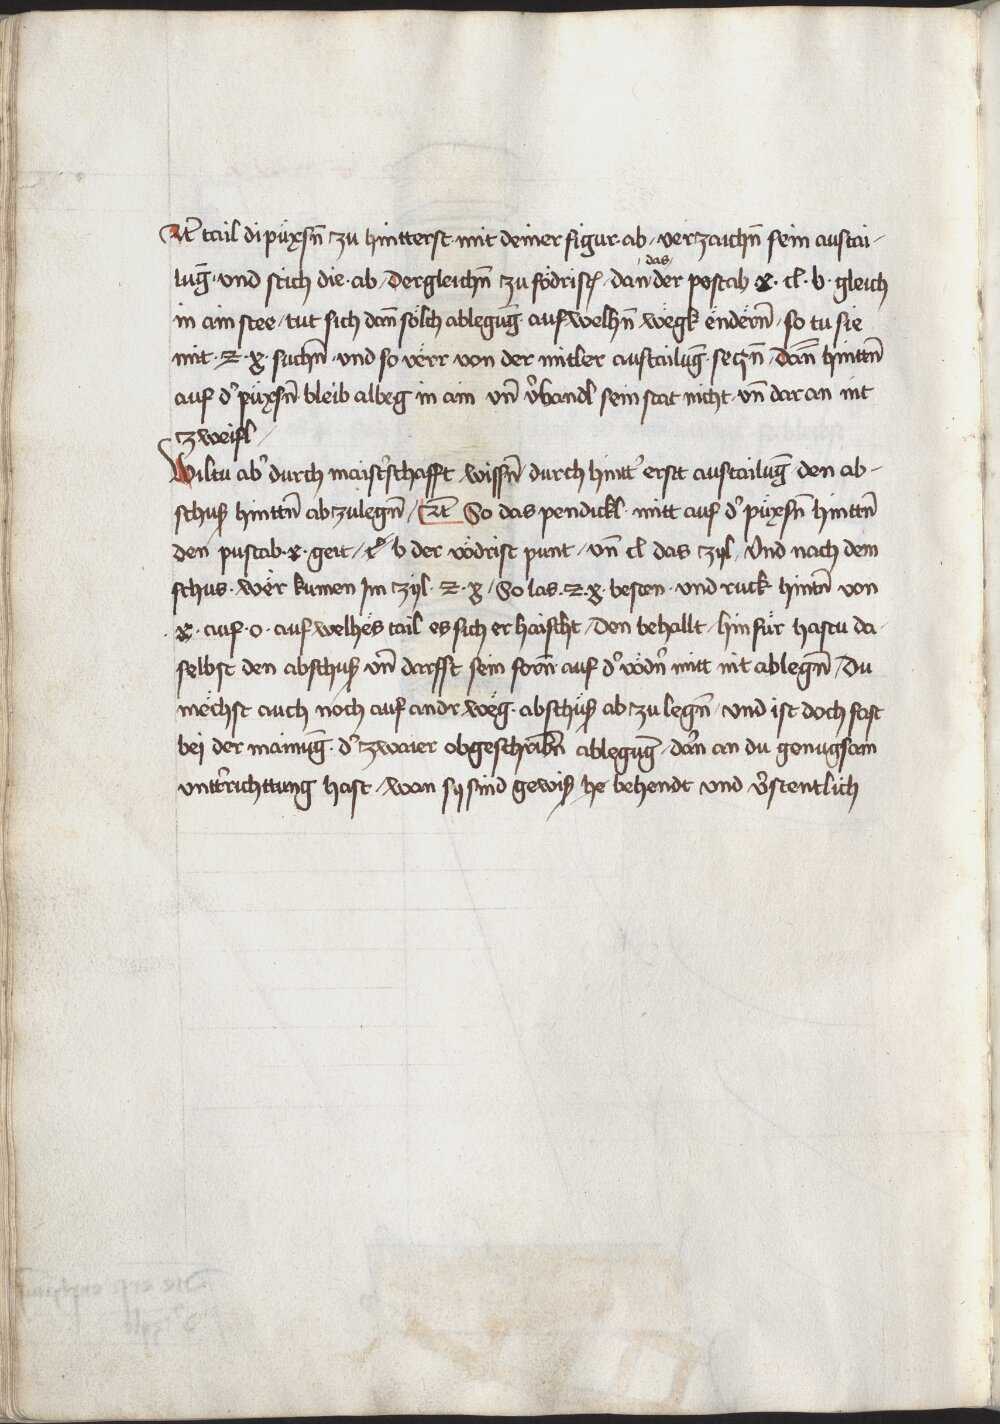 It tail di püxsn̄ zu hintterst mit deiner figur · ab / verzaichn̄ sein austai-
lūg · vnd stich die · ab / Dergleichn̄ zu födrist / dan ʹdasʹ der pestab · x · cl · b · gleich
in aim stee / tut sich dan̄ sölch ablegūg · auf welhn̄ wegk endern̄ / so tu sie
mit · z · x · suchn̄ · vnd so verr von der mitler austailūg · seczn̄ / Dan̄ hinttn̄
auf d' püxsn̄ bleib albeg in aim vn̄ v'bandl sein stat nicht · vn̄ daran nit
zweifl /
Wiltu ab' durch maist'schafft wissn̄ / durch hintt' erst austailūg den ab-
schuß hinttn̄ abzulegn̄ / It So das pendickl · mitt auf d' püxsn̄ hinttn̄
den pustab · x · geit / b der vödrist punt / vn̄ cl das zyl / Vnd nach dem
schus · wer kumen Im zyl · z · x / So las · z · x · besten · vnd ruck hintn̄ von
· x · auf · o · auf welhes tail es sich erhaischt / Den behallt / hinfür hastu da-
selbst den abschuß vn̄ darfft sein forn̄ auf d' vödn' mitt nit ablegn̄ / Du
möchst auch noch auf andr weg · abschuß abzulegn̄ / vnd ist doch fast
bei der mainūg · d' zwaier obgeschribn̄ ablegūg / dan̄ an du genugsam
vntt'richttung hast / wan sy sind gewiß he behendt vnd v'stentlich